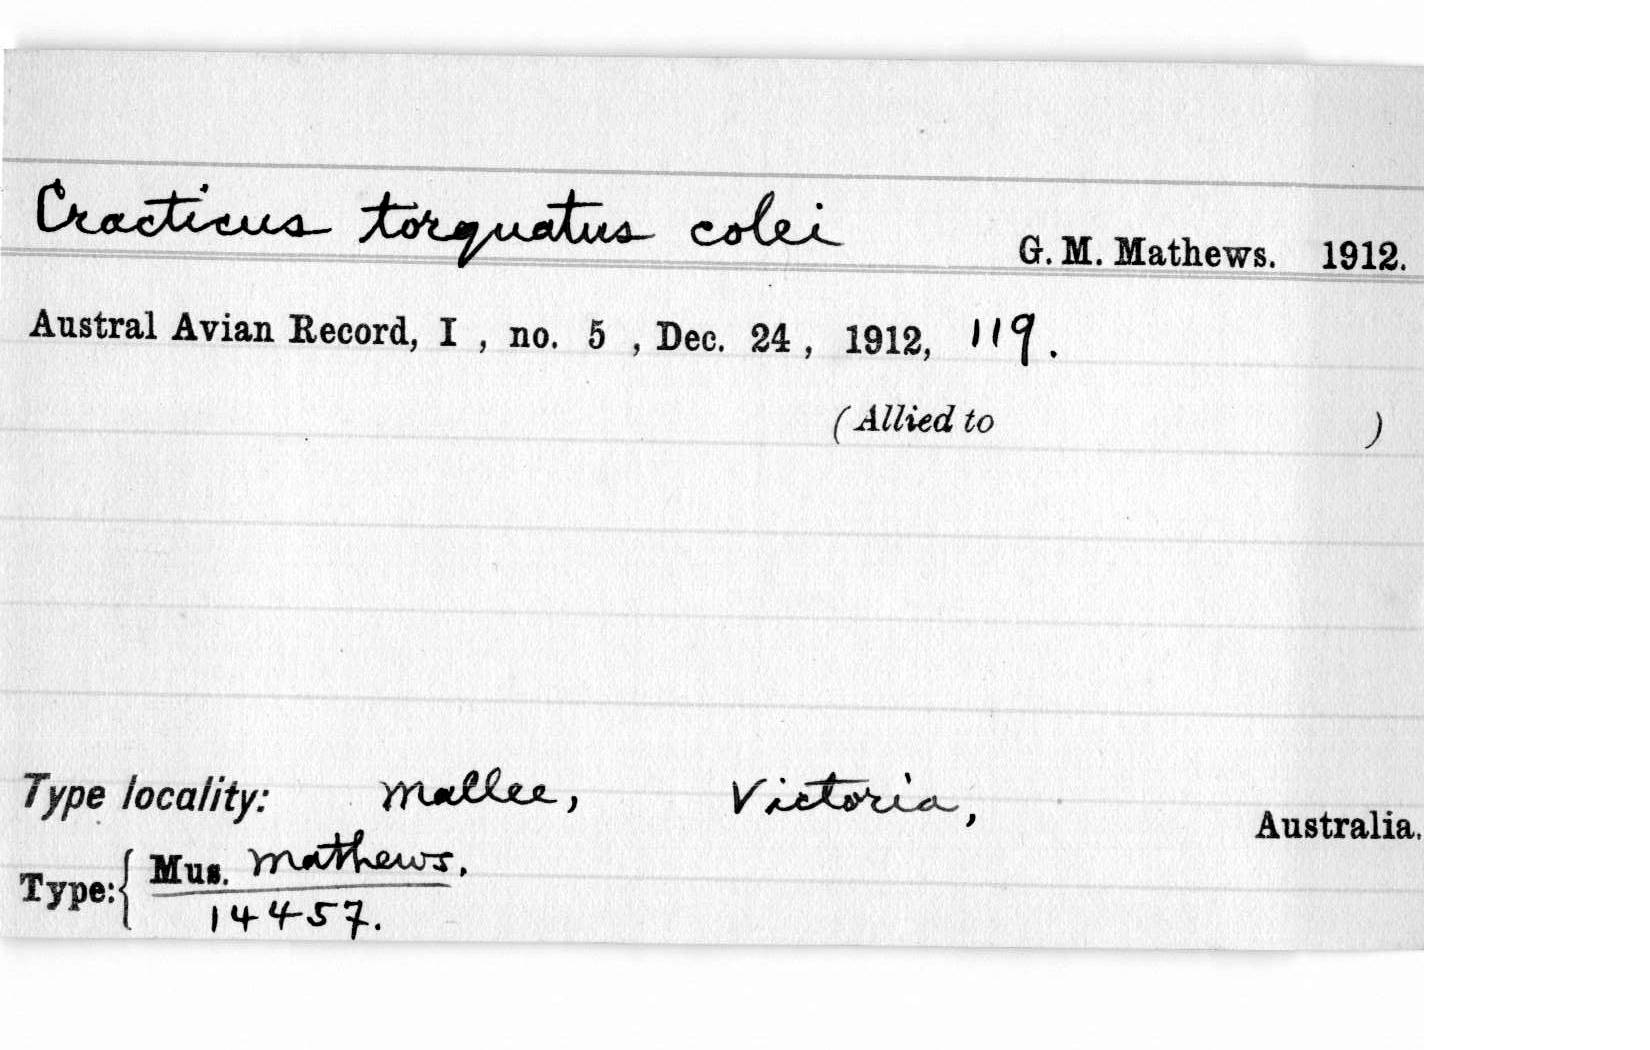 Cracticus torquatus colei G. M. Mathews. 1912.
Austral Avian Record, I , no. 5 , Dec. 24 , 1912, 119.
(Allied to )
Type locality: Mallee, Victoria, Australia.
Type: { Mus. Mathews.
14457.